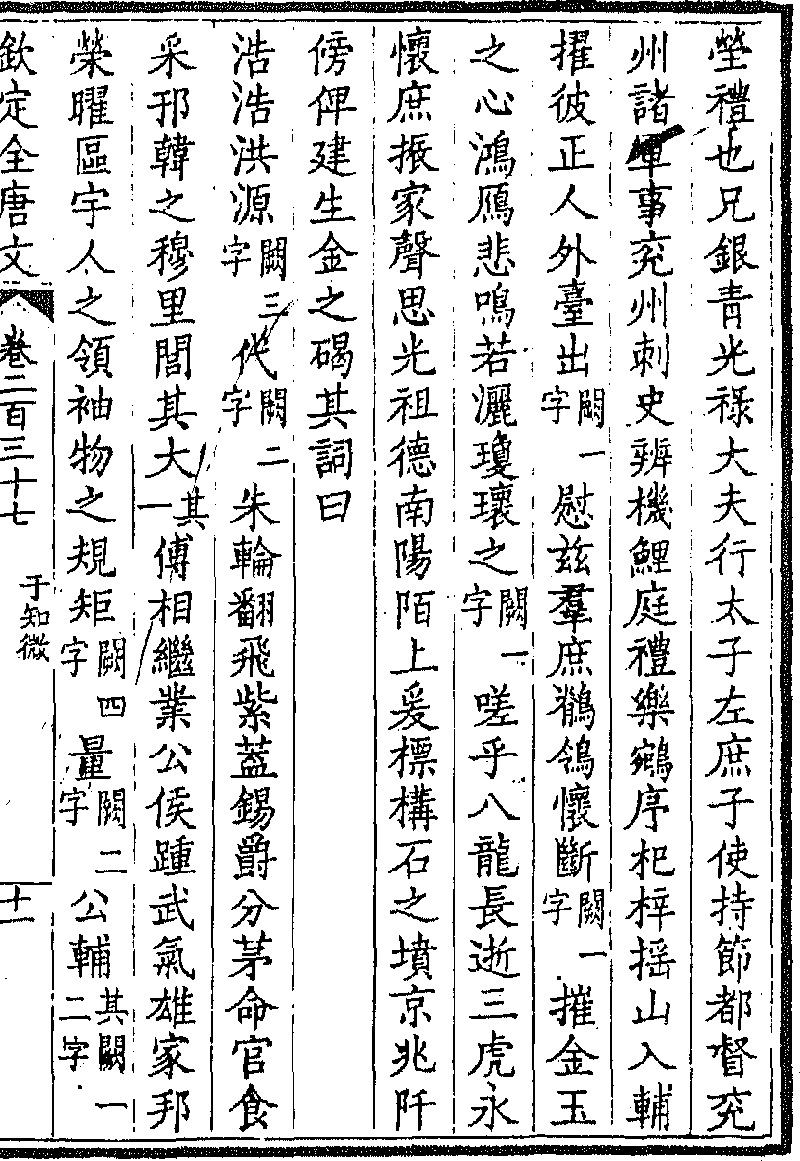 塋禮也兄銀青光祿大夫行太子左庶子使持節都督兖
州諸軍事兖州刺史辨機鯉庭禮樂鵷序杞梓搖山入輔
擢彼正人外臺出闕一字慰兹羣庶鶺鴒懷斷闕一字摧金玉
之心鴻鴈悲鳴若灑瓊瓌之闕一字嗟乎八龍長逝三虎永
懷庶振家聲思光祖德南陽陌上爰標構石之墳京兆阡
傍俾建生金之碣其詞曰
浩浩洪源闕三字代闕二字朱輪翻飛紫蓋錫爵分茅命官食
采邘韓之穆里閭其大其一傅相繼業公侯踵武氣雄家邦
榮曜區宇人之領袖物之規矩闕四字量闕二字公輔其二闕一字
欽定全唐文 卷二百三十七 于知微 十一